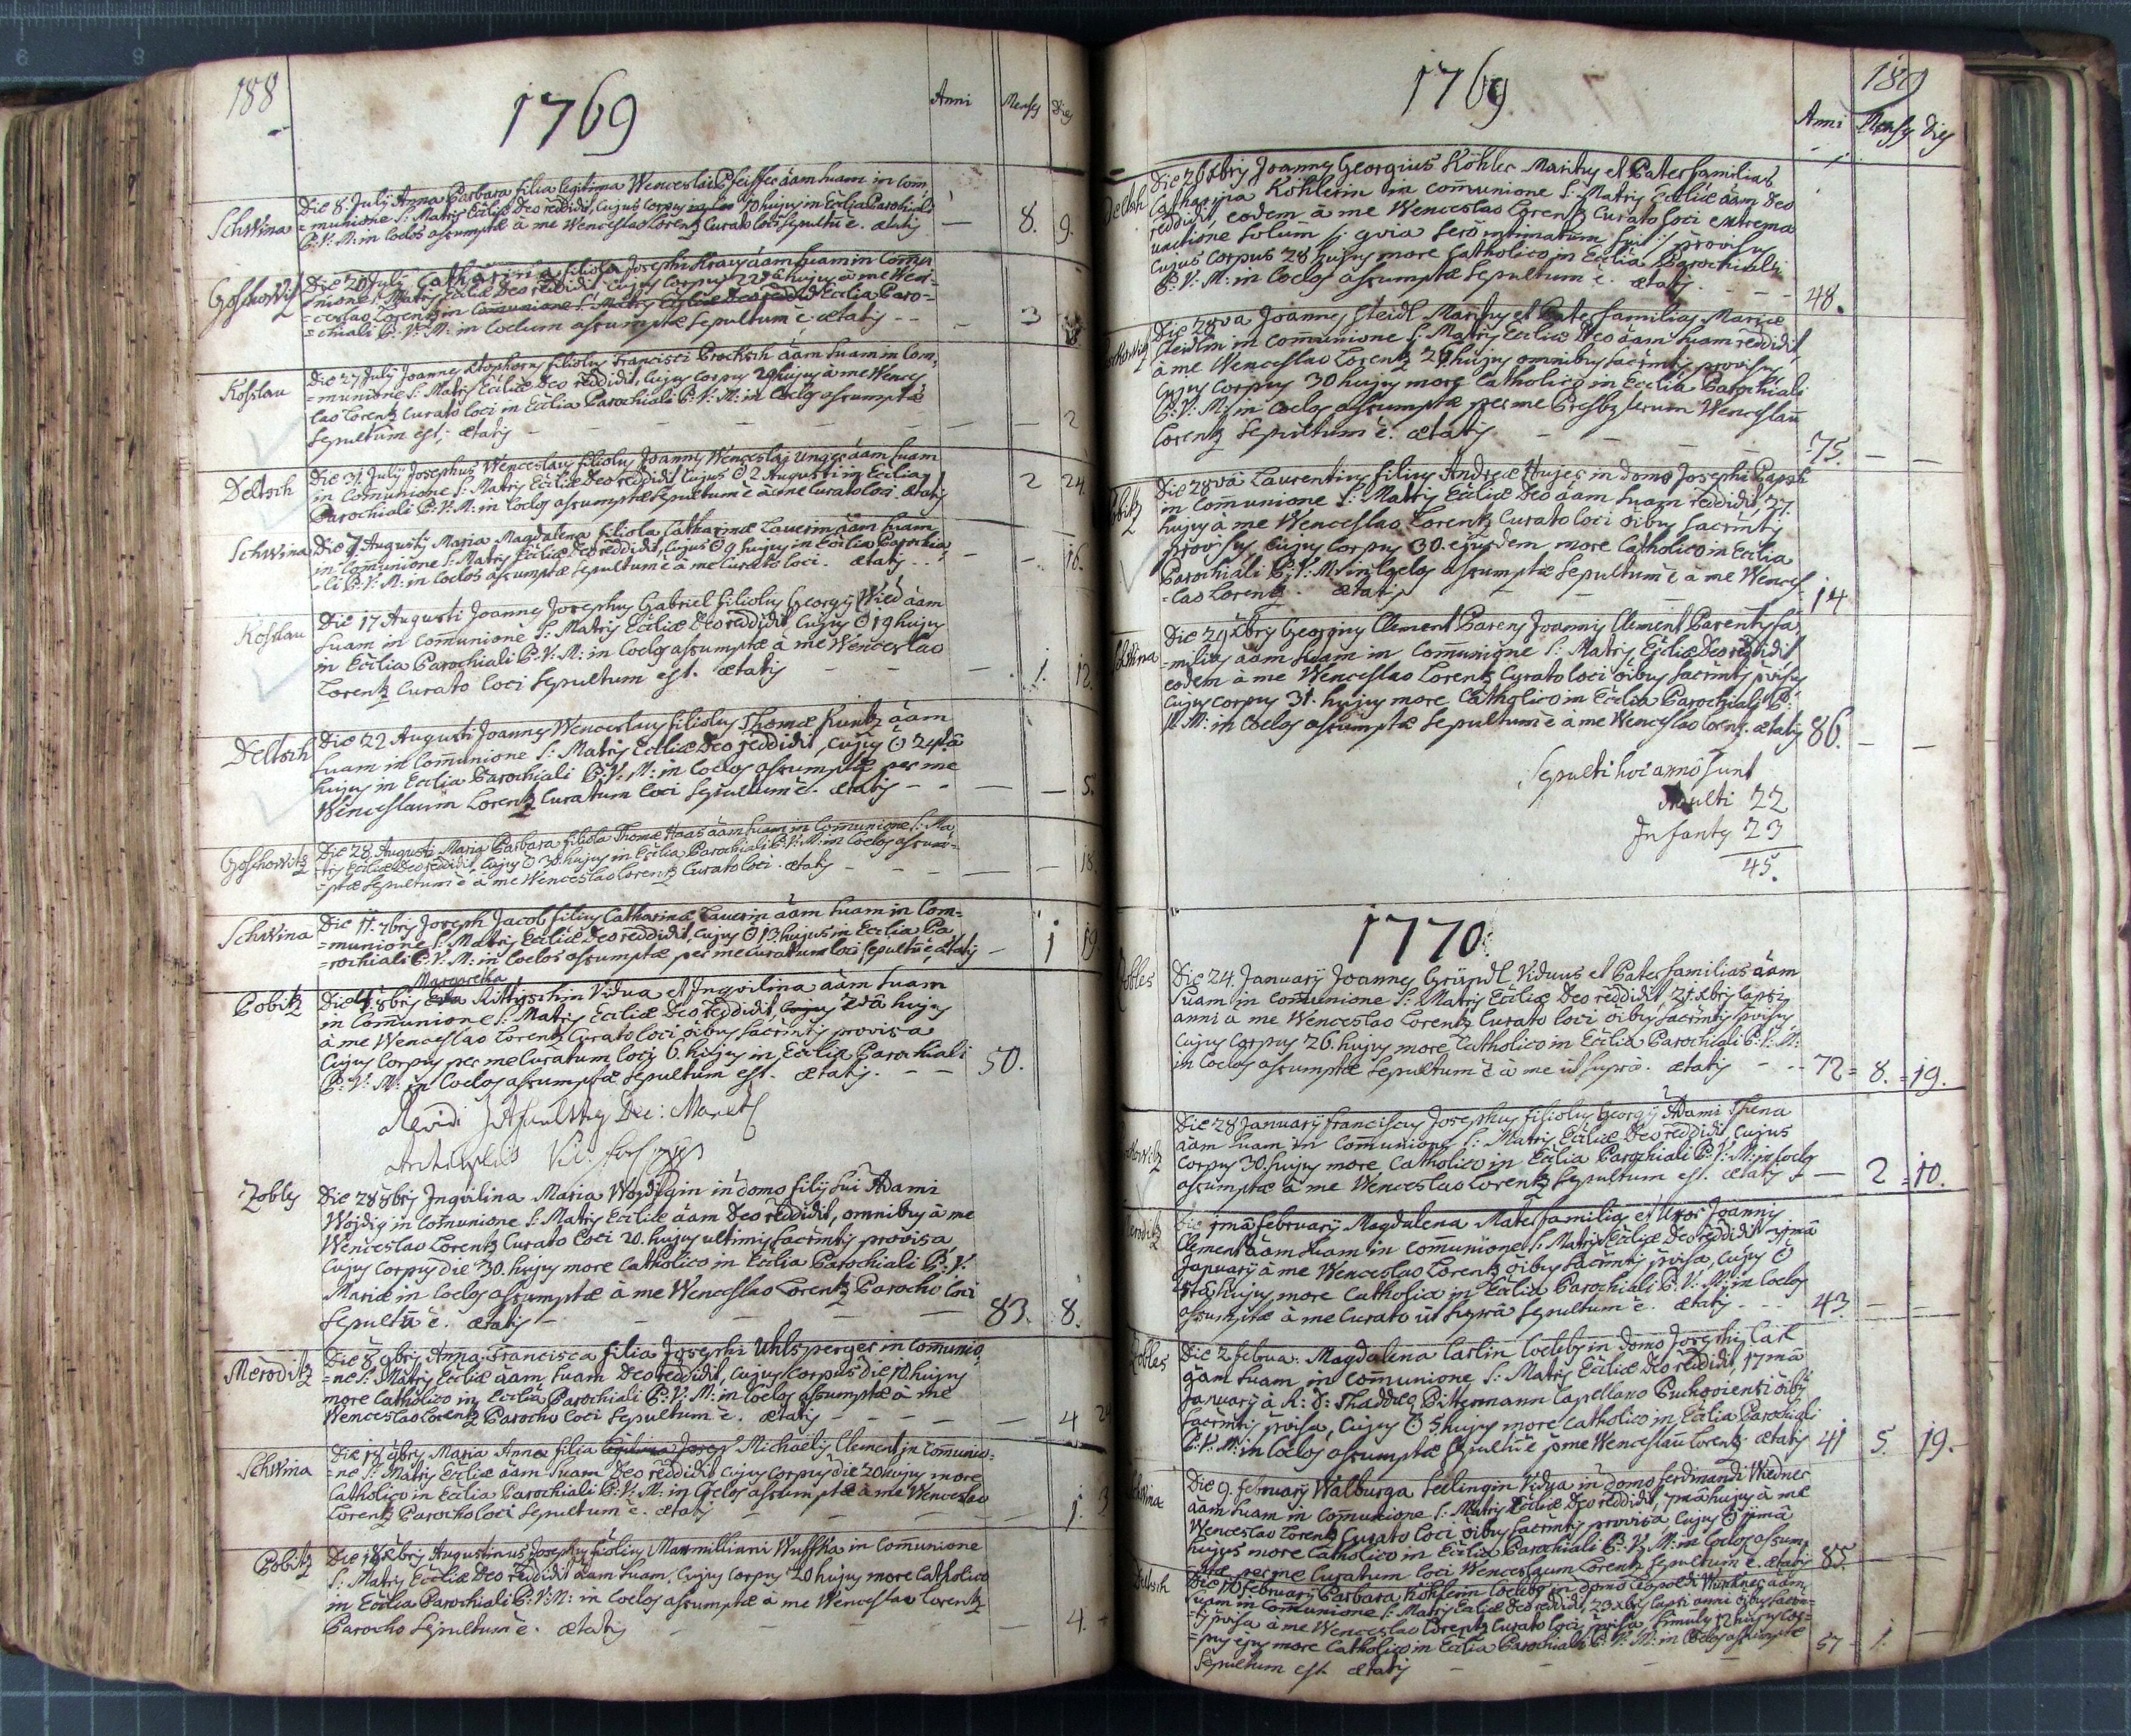 188
1769
Anni Mensẏ Dieẏ
Schwina
Die 8. Julÿ Anna Barbara filia legitima Wenceslai Pfeiffer āam suam in Com,
=munione S: Matris Eccliæ Deo reddidit, Cujus Corpus 10 hujus in Ecclia Parochiali
B: V: M: in Coelos assumptæ à me Wenceslao Lorentz Curato loci sepultū ē. ætatis — 8. 9.
Goschowitz
Die 20 Julÿ Catharina filiola Josephi Kraus āam suam in Comu
=nione S: Matris Eccliæ Deo reddidit Cujus Corpus 22 hujus à me Wen=
=ceslao Lorentz in Communione S: Matris Eccliæ Deo reddidit Ecclia Paro=
=chiali B: V: M: in Coelum assumptæ sepultum ē. ætatis — 3
Koslau
Die 27 Julÿ Joannes filiolus Francisci Brocksch āam suam in Com,
=munione S: Matris Eccliæ Deo reddidit, Cujus Corpus 29 hujus à me Wences
lao Lorentz Curato loci in Ecclia Parochiali B: V: M: in Coelos assumptæ
sepultum est; ætatis — — 2
Deltsch
Die 31. Julÿ Josephus Wenceslaus filiolus Joannis Wenceslai Unger āam suam
in Comunione S: Matris Eccliæ Deo reddidit Cujus ʘ 2 Augusti in Ecclia
Parochiali B: V: M: in Coelos assumptæ sepultum ē à me Curato loci ætatis 2 24.
Schwina
Die 7. Augusti Maria Magdalena filiola Catharinæ Lauerin āam suam
in Comunione S: Matris Eccliæ Deo reddidit, Cujus ʘ 9 hujus in Ecclia Parochia
=li B: V: M: in Coelos assumptæ sepultum ē à me Curato loci. ætatis — 16.
Koslau
Die 17 Augusti Joannes Josephus Gabriel filiolus Georgÿ Wied āam
suam in Comunione S: Matris Eccliæ Deo reddidit Cujus ʘ 19 hujus
in Ecclia Parochiali B: V: M: in Coelos assumptæ à me Wenceslao
Lorentz Curato loci sepultum est. ætatis — 1. 12.
Deltsch
Die 22 Augusti Joannes Wenceslaus filiolus Thomæ Kuntz āam
suam in Comunione S: Matris Eccliæ Deo reddidit, Cujus ʘ 24ta
hujus in Ecclia Parochiali B: V: M: in Coelos assumptæ per me
Wenceslaum Lorentz Curatum loci sepultum ē. ætatis — — 5.
Goschowitz
Die 28 Augusti Maria Barbara filiola Thomæ Haas āam suam in Communione S: Ma,
=tris Eccliæ Deo reddidit, Cujus ʘ 30 hujus in Ecclia Parochiali B: V: M: in Coelos assum=
=ptæ sepultum ē à me Wenceslao Lorentz Curato loci. ætatis — — 18.
Schwina
Die 11. 7bris Joseph Jacob filius Catharinæ Lauerin āam suam in Com=
=munione S: Matris Eccliæ Deo reddidit, Cujus ʘ 13 hujus in Ecclia Pa
=rochiali B: V: M: in Coelos assumptæ per me Curatum loci sepultū ē, ætatis — 1 19.
Pobitz
Margaretha
Die 4. 8bris Eva Kittirschin Vidua et Inquilina āam suam
in Comunione S: Matris Eccliæ Deo reddidit, Cujus 2da hujus
à me Wenceslao Lorentz Curato loci ōibus sacrmtis provisa
Cujus Corpus per me Curatum loci 6. hujus in Ecclia Parochiali
B: V: M: in Coelos assumptæ sepultum est. ætatis — — 50.
Zobles
Die 28 8bris Inquilina Maria Wojdigin in domo filÿ sui Adami
Wojdig in Comunione S: Matris Eccliæ āam Deo reddidit, omnibus à me
Wenceslao Lorentz Curato loci 20. hujus ultimis sacrmtis provisa
Cujus Corpus die 30. hujus more Catholico in Ecclia Parochiali B: V.
Mariæ in Coelos assumptæ à me Wenceslao Lorentz Parocho loci
sepultū ē. ætatis — 83. 8.
Meroditz
Die 8 9bris Anna Francisca filia Josephi Uhlsperger in Comunio,
=ne S: Matris Eccliæ āam suam Deo reddidit, Cujus Corpus die 10 hujus
more Catholico in Ecclia Parochiali B: V: M: in Coelos assumptæ à me
Wenceslao Lorentz Parocho loci sepultum ē. ætatis — 4
Schwina
Die 18 9bris Maria Anna filia Michaelis Clement in Comunio=
=ne S: Matris Eccliæ āam suam Deo reddidit Cujus Corpus die 20 hujus more
Catholico in Ecclia Parochiali B: V: M: in Coelos assumptæ à me Wenceslao
Lorentz Parocho loci sepultum ē. ætatis — 1. 3
Pobitz
Die 18 Xbris Augustinus Josephus filiolus Maxmilliani Wuffka in Comunione
S: Matris Eccliæ Deo reddidit āam suam, Cujus Corpus 20 hujus more Catholico
in Ecclia Parochiali B: V: M: in Coelos assumptæ à me Wenceslao Lorentz
Parocho sepultum ē. ætatis — 4.
189
1769
Anni Mensẏ Dieẏ
Deltsch
Die 26 Xbris Joannes Georgius Köhler Maritus et Paterfamilias
Catharina Köhlerin in comunione S: Matris Eccliæ āam Deo
reddidit, eodem à me Wenceslao Lorentz Curato loci extrema
unctione solum /: quia serò intimatum fuit :/ provisus
Cujus Corpus 28 hujus more Catholico in Ecclia Parochiali
B: V: M: in Coelos assumptæ sepultum ē. ætatis — 48.
Die 28va Joannes Steidl Maritus et Paterfamilias Mariæ
Steidlin in comunione S: Matris Eccliæ Deo āam suam reddidit,
à me Wenceslao Lorentz 24 hujus omnibus sacrmtis provisus
Cujus Corpus 30 hujus more Catholico in Ecclia Parochiali
B: V: M: in Coelos assumptæ per me Presbyterum Wenceslaū
Lorentz sepultum ē. ætatis — 75. — —
Die 28va Laurentius filius Andreæ Hujer in domo Josephi
in Comunione S: Matris Eccliæ Deo āam suam reddidit, 27.
hujus à me Wenceslao Lorentz Curato loci ōibus sacrmtis
provisus, Cujus Corpus 30. ejusdem more Catholico in Ecclia
Parochiali B: V: M: in Coelos assumptæ sepultum ē à me Wences
=lao Lorentz. ætatis — 14
Schwina
Die 29 Xbris Georgius Clement Parens Joannis Clement Parentis fa
=milias āam suam in Comunione S: Matris Eccliæ Deo reddidit
eodem à me Wenceslao Lorentz Curato loci ōibus sacrmtis pvisus
Cujus Corpus 31. hujus more Catholico in Ecclia Parochiali B:
V: M: in Coelos assumptæ sepultum ē à me Wenceslao Lorentz. ætatis 86. — —
Sepulti hoc anno sunt
Adulti 22
Infantes 23
45.
1770.
Zobles
Die 24. Januarÿ Joannes Gründl Viduus et Paterfamilias āam
suam in Comunione S: Matris Eccliæ Deo reddidit, 21. Xbris lapsi
anni à me Wenceslao Lorentz Curato loci ōibus sacrmtis pvisus
Cujus Corpus 26. hujus more Catholico in Ecclia Parochiali B: V: M:
in Coelos assumptæ sepultum ē à me ut supra. ætatis — 72 = 8. = 19.
Die 28 Januarÿ Franciscus Josephus filiolus Georgÿ Adami Thena
āam suam in Comunione S: Matris Eccliæ Deo reddidit Cujus
Corpus 30. hujus more Catholico in Ecclia Parochiali B: V: M: in Coelos
assumptæ à me Wenceslao Lorentz sepultum est. ætatis — 2 = 10.
Meroditz
Die 1mâ Februarÿ Magdalena Materfamilias et Uxor Joannis
Clement āam suam in Comunione S: Matris Eccliæ Deo reddidit
Januarÿ à me Wenceslao Lorentz ōibus sacrmtis pvisa, Cujus ʘ
hujus more Catholico in Ecclia Parochiali B: V: M: in Coelos
assumptæ à me Curato ut supra sepultum ē. ætatis — 43. — —
Zobles
Die 2 Februa: Magdalena Carlin Coelebs in domo Josephi Carl
āam suam in Comunione S: Matris Eccliæ Deo reddidit, 17mâ
Januarÿ à R: D: Thaddeo Pittermann Capellano ōibus
sacrmtis pvisa, Cujus ʘ 5 hujus more Catholico in Ecclia Parochiali
B: V: M: in Coelos assumptæ sepultū ē p me Wenceslaū Lorentz. ætatis 41 5. 19.
Schwina
Die 9. Februarÿ Walburga Seelingin Vidua in domo Ferdinandi Wiedner
āam suam in Comunione S: Matris Eccliæ Deo reddidit, 7mâ hujus à me
Wenceslao Lorentz Curato loci ōibus sacrmtis provisa, Cujus ʘ 11mâ
hujus more Catholico in Ecclia Parochiali B: V: M: in Coelos assum,
=ptæ per me Curatum loci Wenceslaum Lorentz sepultum ē. ætatis 85. — —
Deltsch
Die 10 Februarÿ Barbara Köhlerin Coelebs in domo Leopoldi āam
suam in Comunione S: Matris Eccliæ Deo reddidit, 23 Xbris lapsi anni ōibus sacrm=
=tis pvisa à me Wenceslao Lorentz Curato loci 12 hujus Cor=
=pus ejus more Catholico in Ecclia Parochiali B: V: M: in Coelos assumptæ
sepultum est. ætatis — 57 — 1. —